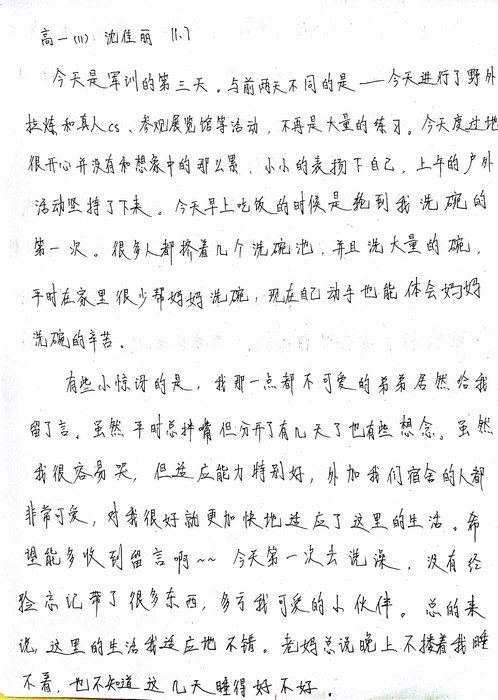 高一(11) 沈佳丽 11.7
今天是军训的第三天。与前两天不同的是——今天进行了野外
拉炼和真人cs、参观展览馆等活动，不再是大量的练习。今天度过地
很开心并没有和想象中的那么累，小小的表扬下自己，上午的户外
活动坚持了下来。今天早上吃饭的时候是轮到我洗碗的
第一次。很多人都挤着几个洗碗池，并且洗大量的碗，
平时在家里很少帮妈妈洗碗，现在自己动手也能体会妈妈
洗碗的辛苦。
有些小惊讶的是，我那一点都不可爱的弟弟居然给我
留了言。虽然平时总拌嘴但分开了有几天了也有些想念。虽然
我很容易哭，但适应能力特别好，外加我们宿舍的人都
非常可爱，对我很好就更加快地适应了这里的生活。希
望能多收到留言啊~~ 今天第一次去洗澡，没有经
验忘记带了很多东西，多亏我可爱的小伙伴。总的来
说，这里的生活我适应地不错。老妈总说晚上不搂着我睡
不着，也不知道这几天睡得好不好．